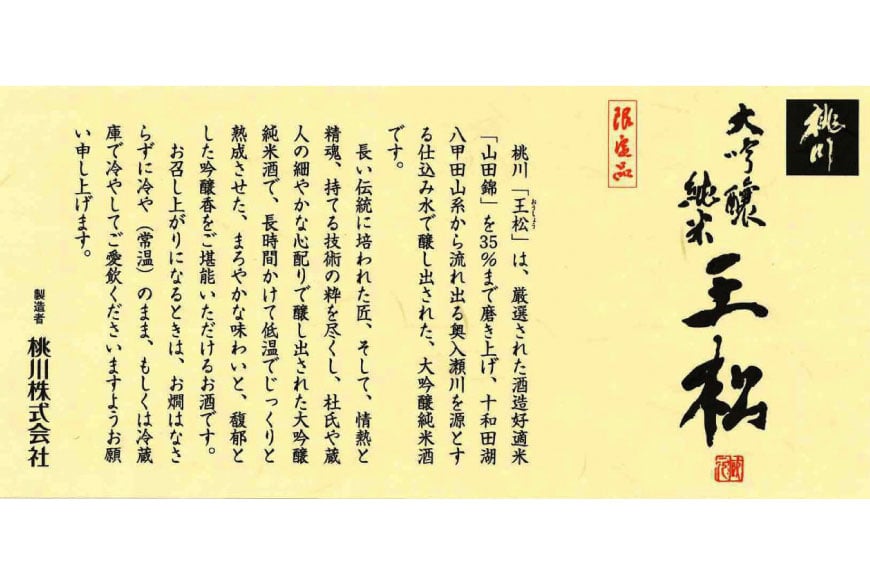 桃川
大吟醸
純米
王松
限定品
桃川「王松」は、厳選された酒造好適米
おうしょう
「山田錦」を35%まで磨き上げ、十和田湖
八甲田山系から流れ出る奥入瀬川を源とす
る仕込み水で醸し出された、大吟醸純米酒
です。
長い伝統に培われた匠、そして、情熱と
精魂、持てる技術の粋を尽くし、杜氏や蔵
人の細やかな心配りで醸し出された大吟醸
純米酒で、長時間かけて低温でじっくりと
熟成させた、まろやかな味わいと、馥郁と
した吟醸香をご堪能いただけるお酒です。
お召し上がりになるときは、お燗はなさ
らずに冷や（常温）のまま、もしくは冷蔵
庫で冷やしてご愛飲くださいますようお願
い申し上げます。
製造者 桃川株式会社